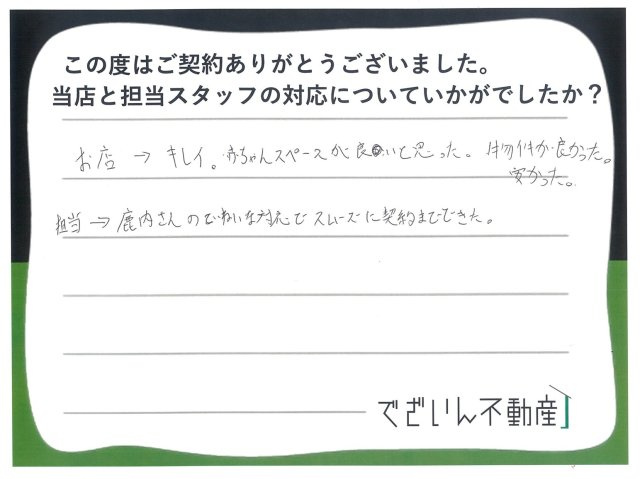 この度はご契約ありがとうございました。
当店と担当スタッフの対応についていかがでしたか？
お店 → キレイ。赤ちゃんスペースが良いと思った。物件が良かった。
安かった。
担当 → 鹿内さんのていねいな対応でスムーズに契約までできた。
でざいん不動産